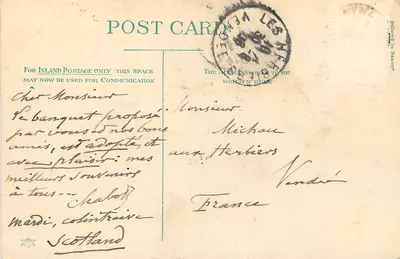 POST CARD
FOR INLAND POSTAGE ONLY THIS SPACE
MAY NOW BE USED FOR COMMUNICATION.
LES HERBIERS
VENDÉE
Cher Monsieur
Le banquet proposé
par vous et nos bons
amis, est adopté, et
avec plaisir: mes
meilleurs souvenirs
à tous --
Chabot
mardi, colintraive
Scotland
THE
WRITTEN HERE
Monsieur
Michau
aux Herbiers
Vendée
France